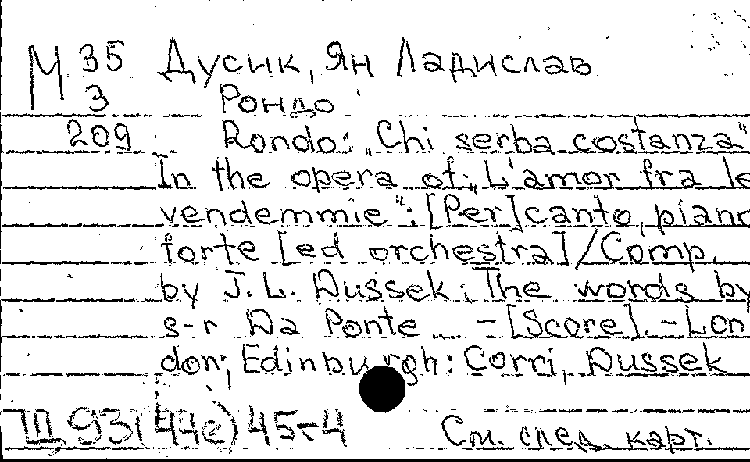 М 35 Дусик, Ян Ладислав
3 Рондо
209 Rondo: „Chi serba costanza“
In the opera of: „L'amor fra le
vendemmie“: [Per] canto, piano
forte [ed orchestra] / Comp.
by J. L. Dussek; The words by
s-r Da Ponte. - [Score]. - Lon
don; Edinburgh: Corri, Dussek
Щ 93(44e)45-4 См. след. карт.